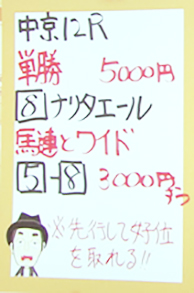 中京12R
単勝 5000円
8 ナリタエール
馬連とワイド
5-8 3000円ずつ
※先行して好位を取れる!!